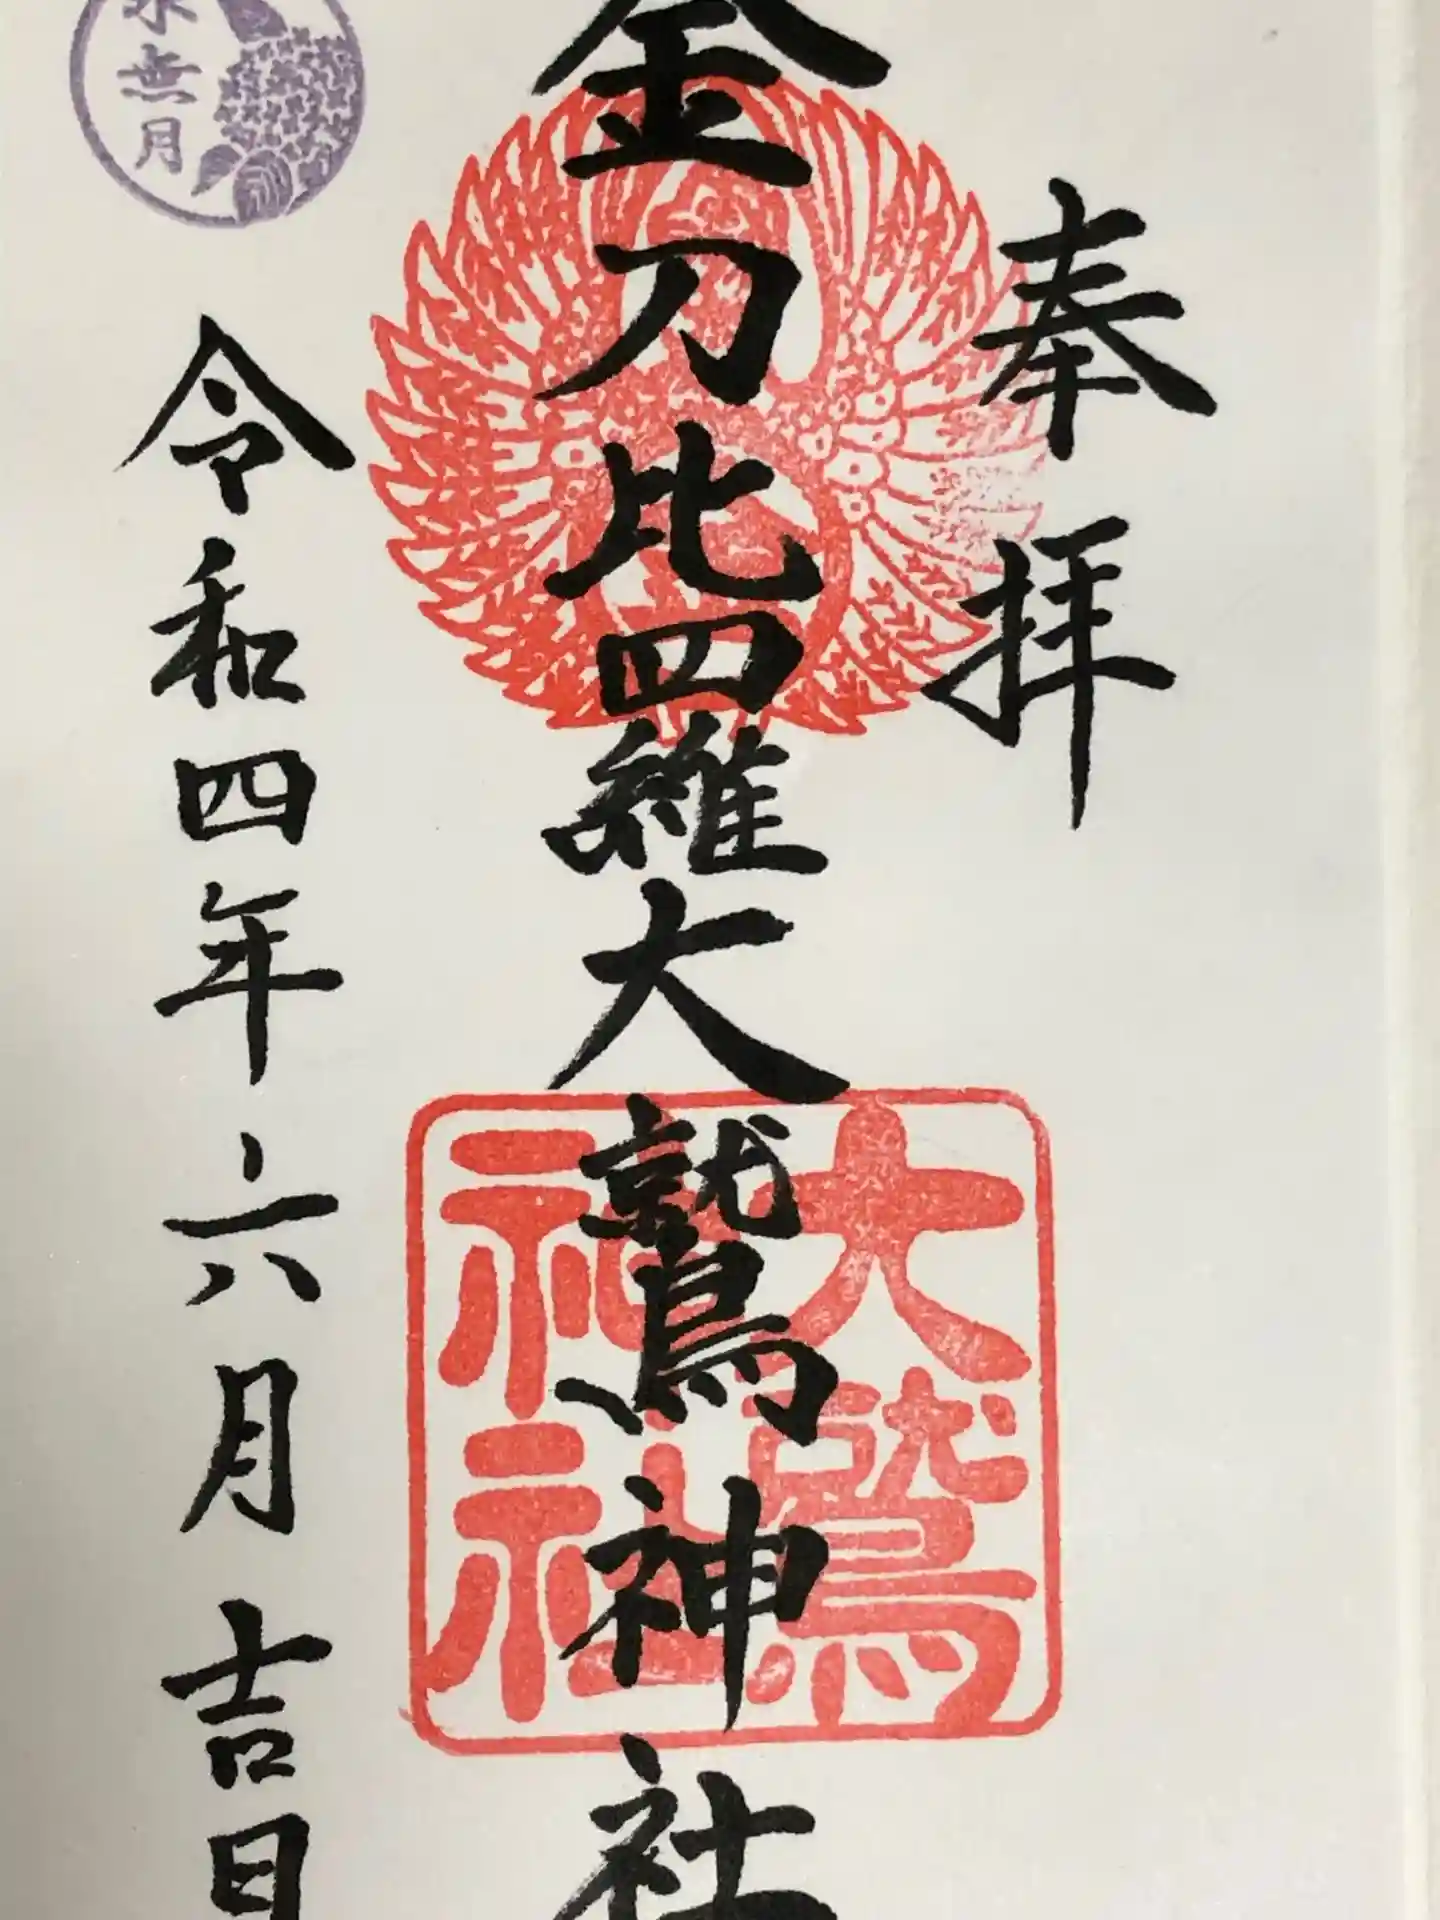 奉拝
金刀比羅大鷲神社
大鷲
神社
令和四年六月吉日
水無月